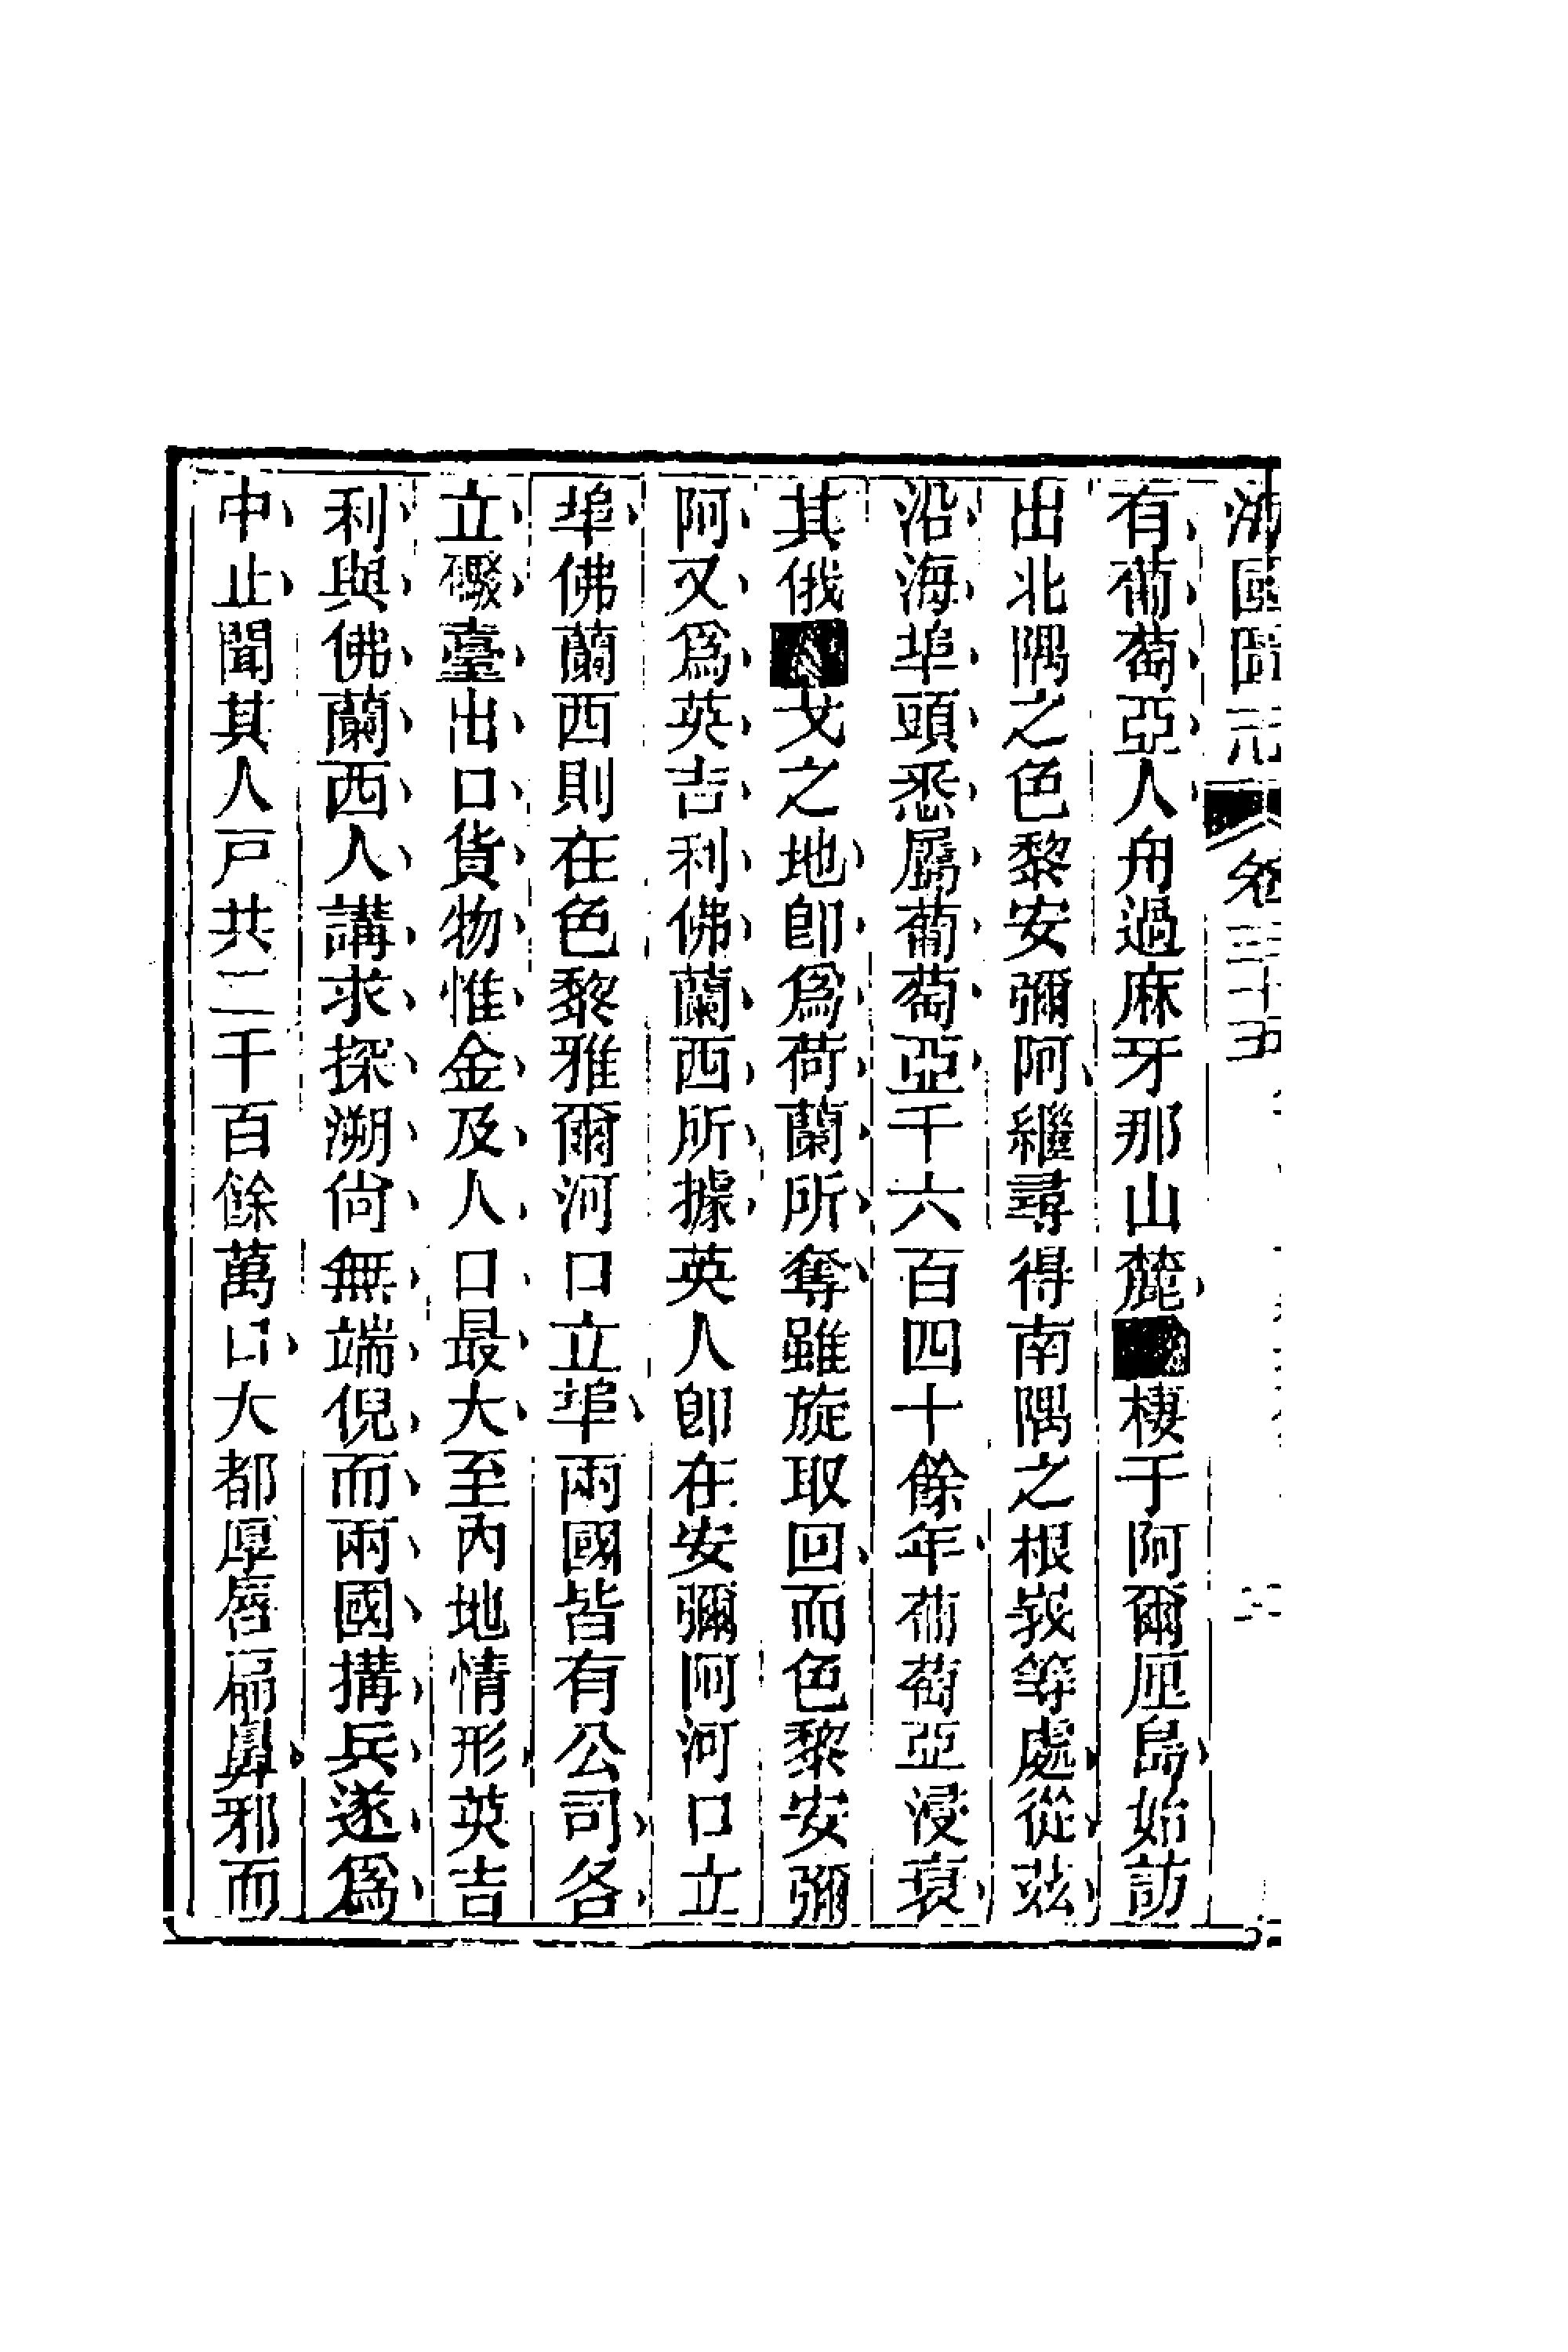 海國圖志 卷三十五
有葡萄亞人舟過麻牙那山麓棲于阿爾厓島始訪
出北隅之色黎安彌阿繼尋得南隅之根峩等處從茲
沿海埠頭悉屬葡萄亞千六百四十餘年葡萄亞浸衰
其俄戈之地卽爲荷蘭所奪雖旋取回而色黎安彌
阿又爲英吉利佛蘭西所據英人卽在安彌阿河口立
埠佛蘭西則在色黎雅爾河口立埠兩國皆有公司各
立礮臺出口貨物惟金及人口最大至內地情形英吉
利與佛蘭西人講求探溯尙無端倪而兩國搆兵遂爲
中止聞其人戸共二千百餘萬口大都厚唇扁鼻邪而